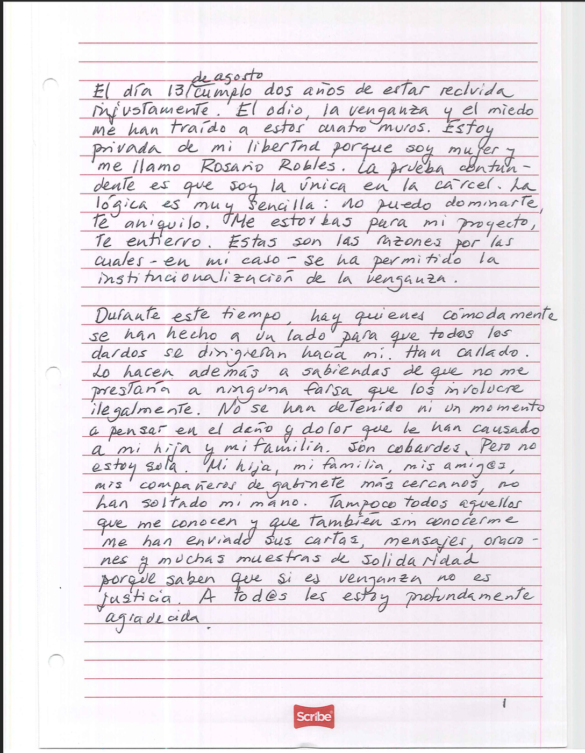 de agosto
El día 13/cumplo dos años de estar recluida
injustamente. El odio, la venganza y el miedo
me han traído a estos cuatro muros. Estoy
privada de mi libertad porque soy mujer y
me llamo Rosario Robles. La prueba contun-
dente es que soy la única en la cárcel. La
lógica es muy sencilla: no puedo dominarte,
te aniquilo. Me estorbas para mi proyecto,
te entierro. Estas son las razones por las
cuales - en mi caso - se ha permitido la
institucionalización de la venganza.
Durante este tiempo, hay quienes cómodamente
se han hecho a un lado para que todos los
dardos se dirigieran hacia mí. Han callado.
Lo hacen además a sabiendas de que no me
prestaría a ninguna farsa que los involucre
ilegalmente. No se han detenido ni un momento
a pensar en el daño y dolor que le han causado
a mi hija y mi familia. Son cobardes. Pero no
estoy sola. Mi hija, mi familia, mis amigas,
mis compañeros de gabinete más cercanos, no
han soltado mi mano. Tampoco todos aquellos
que me conocen y que también sin conocerme
me han enviado sus cartas, mensajes, oracio-
nes y muchas muestras de solidaridad
porque saben que si es venganza no es
justicia. A tod@s les estoy profundamente
agradecida.
1
Scribe